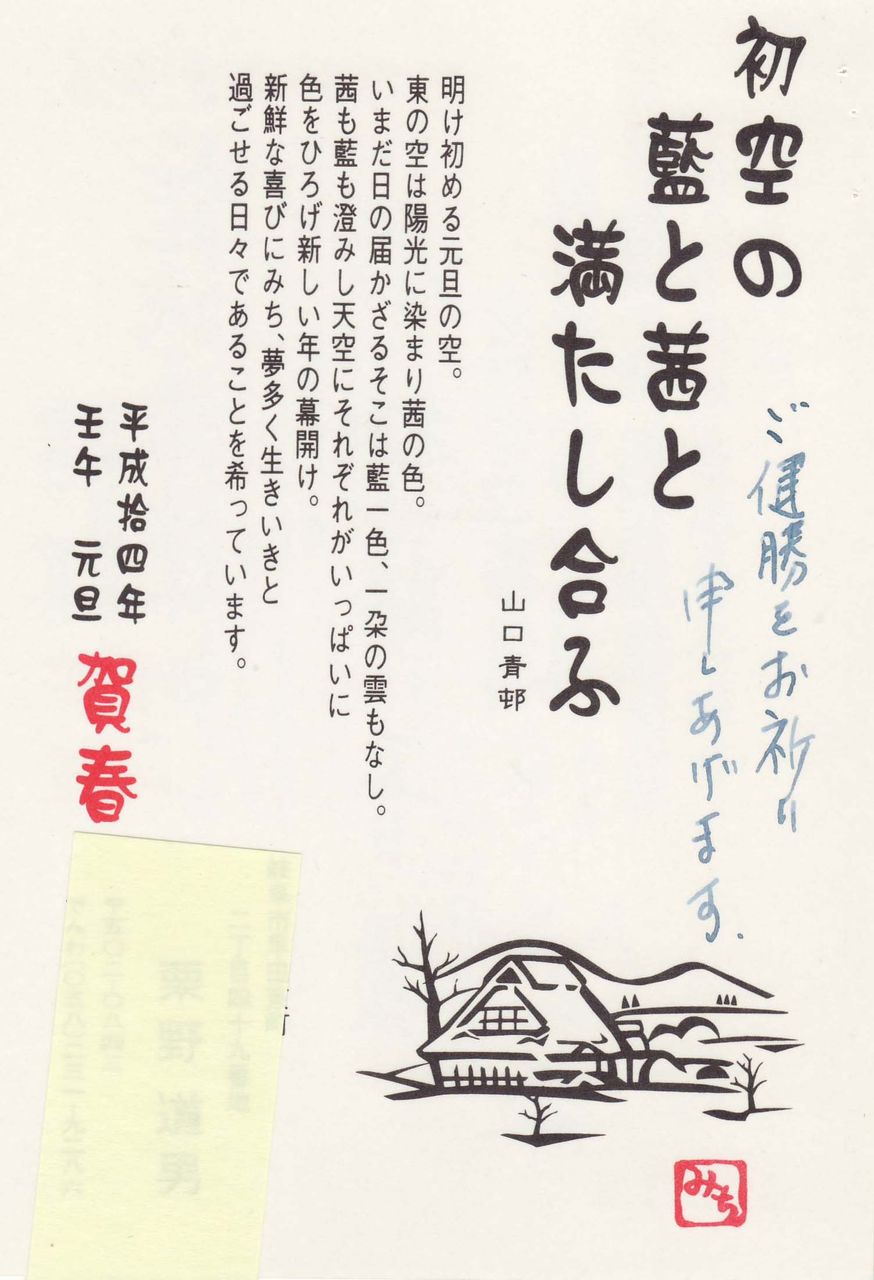 初空の
藍と茜と
満たし合ふ
山口青邨
ご健勝をお祈り
申しあげます.
明け初める元旦の空。
東の空は陽光に染まり茜の色。
いまだ日の届かざるそこは藍一色、一朶の雲もなし。
茜も藍も澄みし天空にそれぞれがいっぱいに
色をひろげ新しい年の幕開け。
新鮮な喜びにみち、夢多く生きいきと
過ごせる日々であることを希っています。
平成拾四年
壬午 元旦
賀春
みち